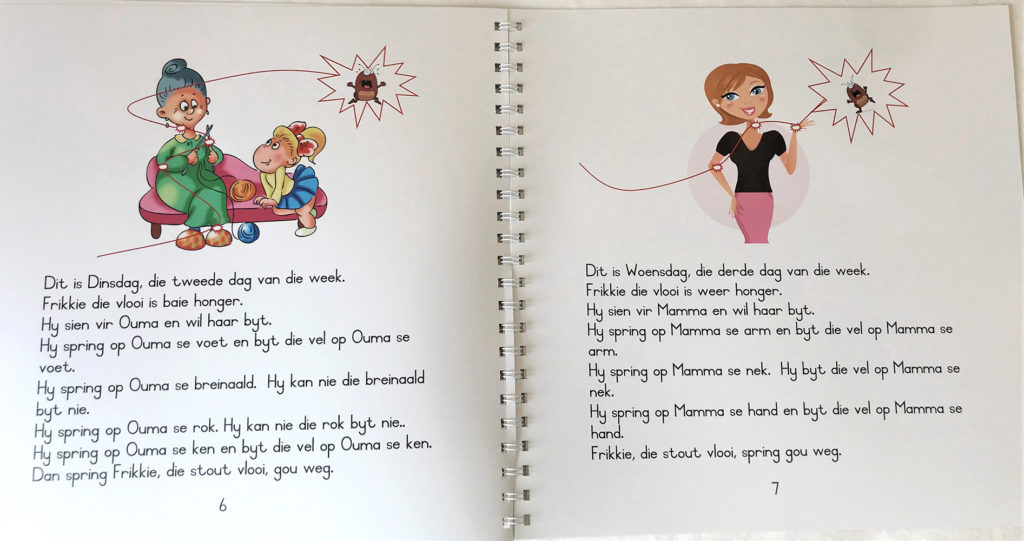 Dit is Dinsdag, die tweede dag van die week.
Frikkie die vlooi is baie honger.
Hy sien vir Ouma en wil haar byt.
Hy spring op Ouma se voet en byt die vel op Ouma se
voet.
Hy spring op Ouma se breinaald. Hy kan nie die breinaald
byt nie.
Hy spring op Ouma se rok. Hy kan nie die rok byt nie..
Hy spring op Ouma se ken en byt die vel op Ouma se ken.
Dan spring Frikkie, die stout vlooi, gou weg.
6
Dit is Woensdag, die derde dag van die week.
Frikkie die vlooi is weer honger.
Hy sien vir Mamma en wil haar byt.
Hy spring op Mamma se arm en byt die vel op Mamma se
arm.
Hy spring op Mamma se nek. Hy byt die vel op Mamma se
nek.
Hy spring op Mamma se hand en byt die vel op Mamma se
hand.
Frikkie, die stout vlooi, spring gou weg.
7